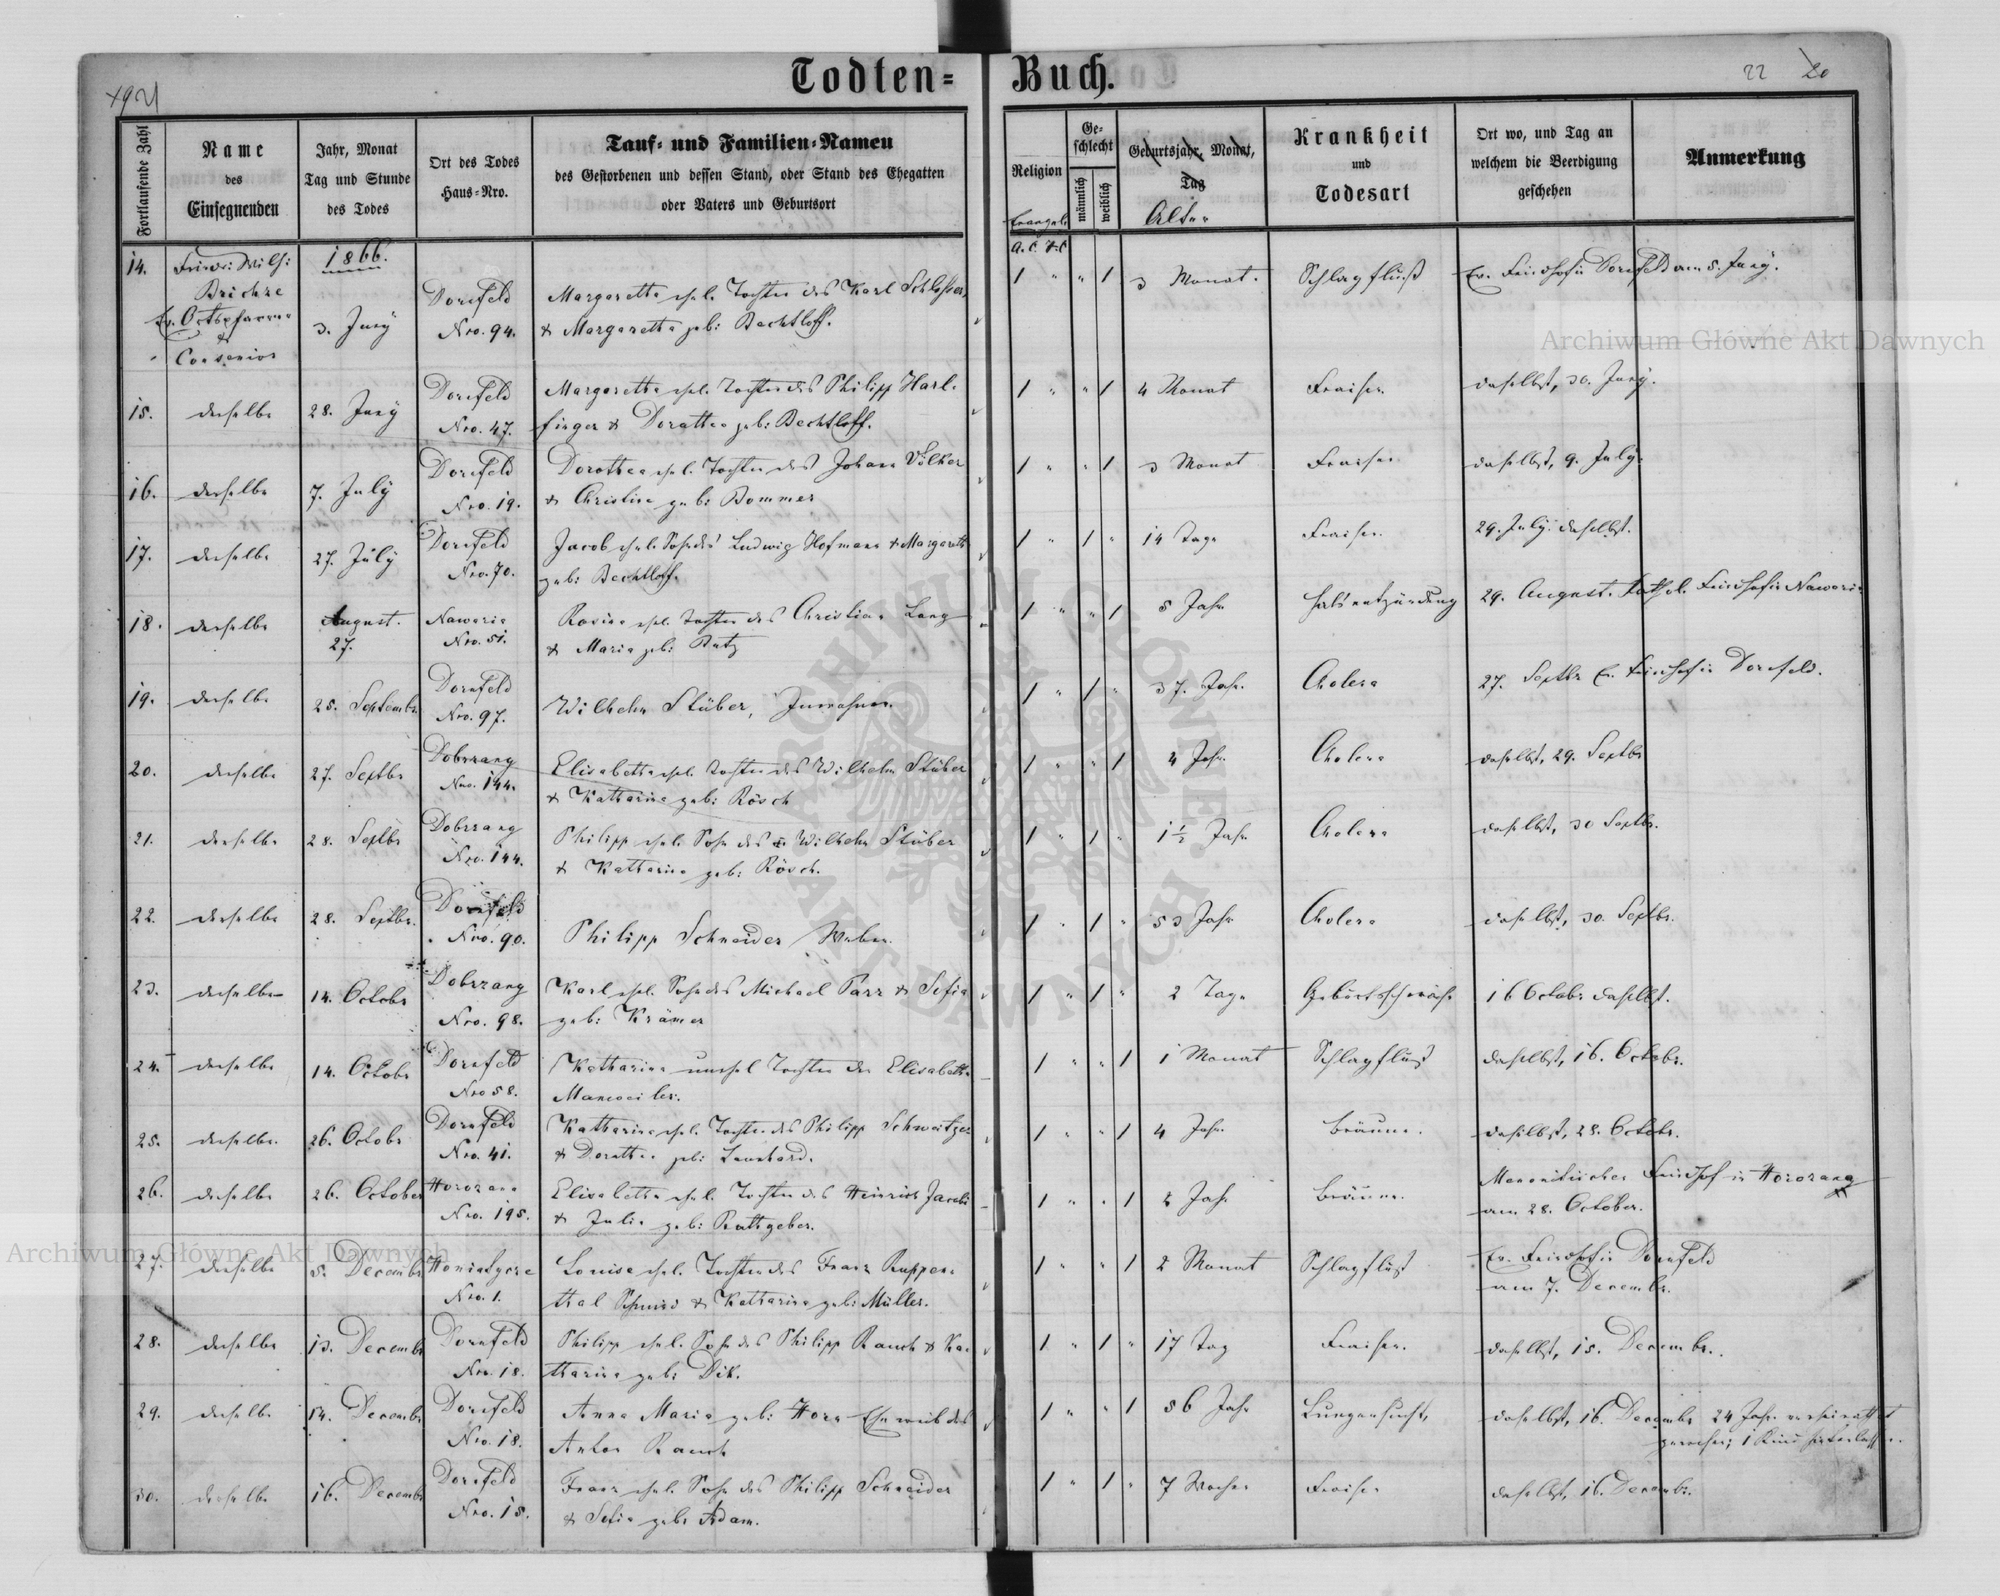 Todten-Buch.
22 20
Fortlaufende Zahl
Name
des
Einsegnenden
Jahr, Monat
Tag und Stunde
des Todes
Ort des Todes
Haus-Nro.
Tauf- und Familien-Namen
des Gestorbenen und dessen Stand, oder Stand des Ehegatten
oder Vaters und Geburtsort
Religion
Ge-
schlecht
männlich
weiblich
Geburtsjahr, Monat,
Tag
Alter
Krankheit
und
Todesart
Ort wo, und Tag an
welchem die Beerdigung
geschehen
Anmerkung
Evangel.
A. C. H. C
1866.
14. Friedr: Wilh:
Ev. Ortspfarrer
&
Consenior
3. Juny
Dornfeld
Nro. 94.
Margaretha ehel. Tochter des Karl Schlosser,
& Margaretha geb: Bechtloff.
1 " " 1 3 Monat. Schlagfluß Ev. Friedhof in Dornfeld am 5. Juny.
15. derselbe 28. Juny Dornfeld
Nro. 47.
Margaretha ehel. Tochter des Philipp Harl-
finger & Dorothea geb: Bechtloff.
1 " " 1 4 Monat Fraisen daselbst, 30. Juny.
16. derselbe 7. July Dornfeld
Nro. 19.
Dorothea ehel. Tochter des Johann Völker
& Christine geb: Bommer
1 " " 1 3 Monat Fraisen daselbst, 9. July.
17. derselbe 27. July Dornfeld
Nro. 70.
Jacob ehel. Sohn des Ludwig Hofmann & Margareth
geb: Bechtloff.
1 " 1 " 14 Tage Fraisen. 29. July. daselbst.
18. derselbe August.
27.
Nawaria
Nro. 51.
Rosina ehel. Tochter des Christian Lang
& Maria geb: Butz
1 " " 1 5 Jahr Halsentzündung 29. August. kathol. Friedhof in Nawaria
19. derselbe 25. Septembr Dornfeld
Nro. 97.
Wilhelm Stüber, Inwohner.
1 " 1 " 37. Jahr. Cholera 27. Septbr Ev. Friedhof in Dornfeld.
20. derselbe 27. Septbr Dobrzany
Nro. 144.
Elisabetha ehel. Tochter des Wilhelm Stüber
& Katharina geb: Rösch
1 " " 1 4 Jahr Cholera daselbst, 29. Septbr
21. derselbe 28. Septbr Dobrzany
Nro. 144.
Philipp ehel. Sohn des Wilhelm Stüber
& Katharina geb: Rösch.
1 " 1 " 1½ Jahr Cholera daselbst, 30 Septbr.
22. derselbe 28. Septbr. Dornfeld
Nro. 90.
Philipp Schneider Weber.
1 " 1 " 53 Jahr Cholera daselbst, 30. Septbr.
23. derselbe 14. Octobr Dobrzany
Nro. 98.
Karl ehel. Sohn des Michael Parr & Sofia
geb: Krämer
1 " 1 " 2 Tage Geburtsschwäche 16 Octobr daselbst.
24. derselbe 14. Octobr Dornfeld
Nro 58.
Katharina unehel Tochter der Elisabeth
1 " " 1 1 Monat Schlagfluß daselbst, 16. Octobr.
25. derselbe. 26. Octobr Dornfeld
Nro. 41.
Katharina ehel. Tochter des Philipp Schweitzer
& Dorothea geb: Leonhard.
1 " " 1 4 Jahr. Bräune. daselbst, 28. Octobr.
26. derselbe 26. October Horozana
Nro. 195.
Elisabetha ehel. Tochter des Heinrich Jacobi
& Julia geb: Rathgeber.
1 " " 1 2 Jahr Bräune. Menonitischer Friedhof in Horozana
am 28. October.
27. derselbe 5. Decembr Honiatycze
Nro. 1.
Louise ehel. Tochter des Franz Ruppen-
thal Schmied & Katharina geb: Müller.
1 " " 1 2 Monat Schlagfluß Ev. Friedhof in Dornfeld
am 7. Decembr.
28. derselbe 13. Decembr Dornfeld
Nro. 18.
Philipp ehel. Sohn des Philipp Rauch & Ka-
tharina geb: Dik.
1 " 1 " 17 Tag Fraisen. daselbst, 15. Decembr.
29. derselbe 14. Decembr Dornfeld
Nro. 18.
Anna Maria geb: Horn Eheweib des
Anton Rauch
1 " " 1 56 Jahr Lungensucht, daselbst, 16. Decembr 24 Jahr verheirathet
gewesen; 1 Kind hinterlassen.
30. derselbe 16. Decembr Dornfeld
Nro. 15.
Franz ehel. Sohn des Philipp Schneider
& Sofia geb: Adam.
1 " 1 " 7 Wochen Fraisen daselbst, 16. Decembr.
Archiwum Główne Akt Dawnych
Archiwum Główne Akt Dawnych
ARCHIWUM GŁÓWNE AKT DAWNYCH